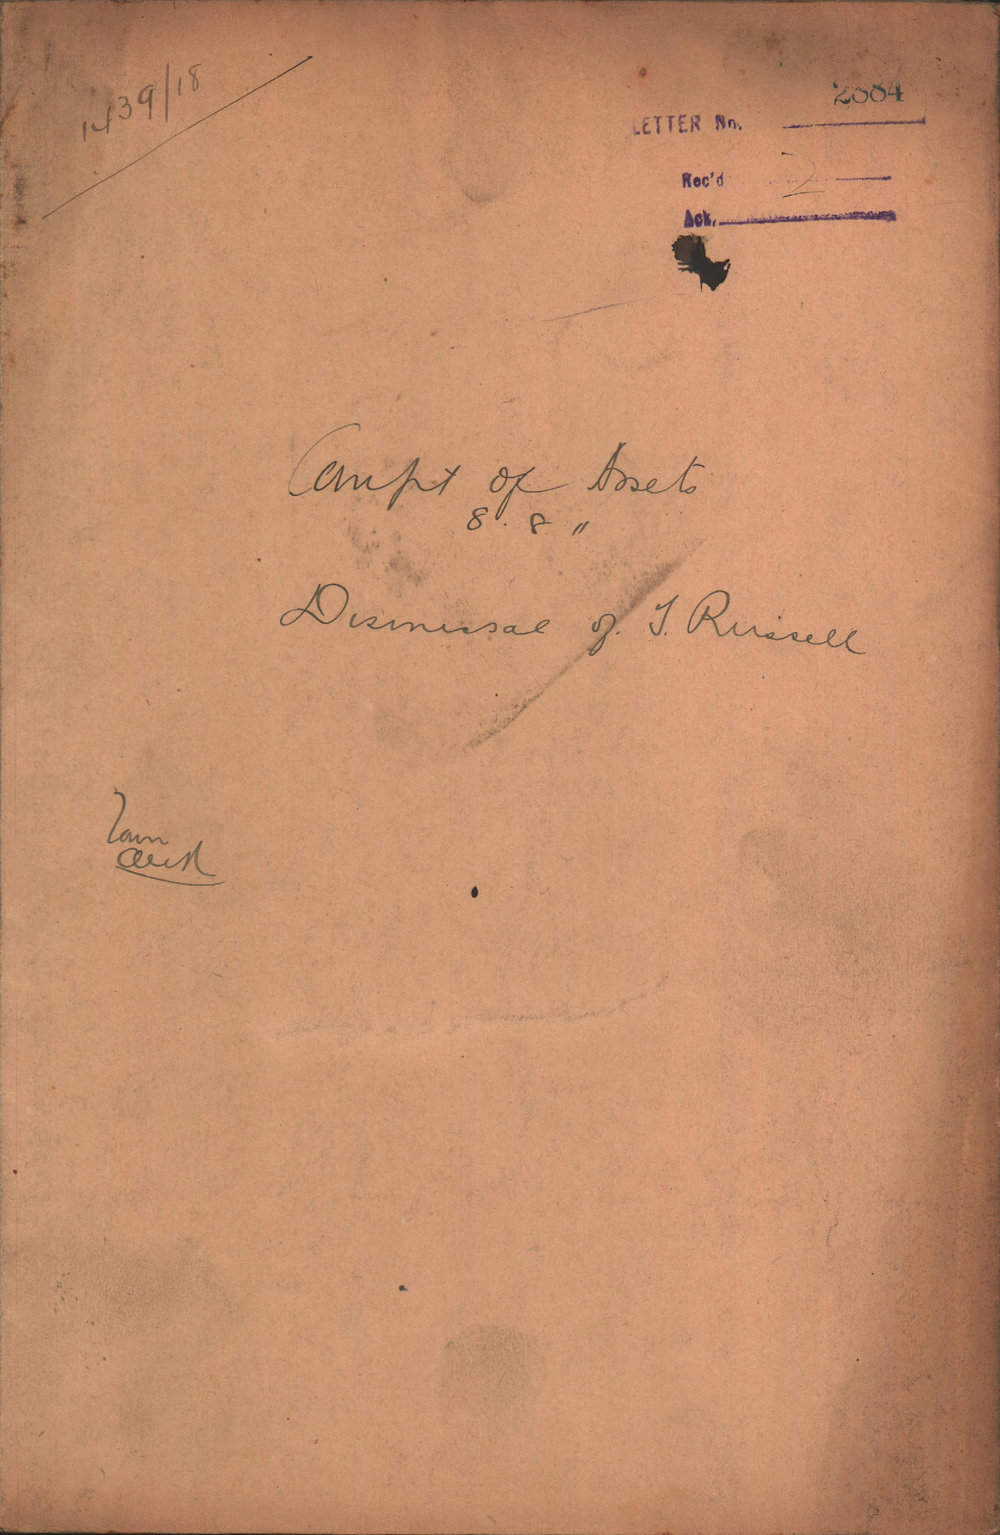 1439/18
2884
LETTER No.
Rec'd 2
Ack.
of Assets
8. 8 "
Dismissal of T. Russell
Town
Clerk